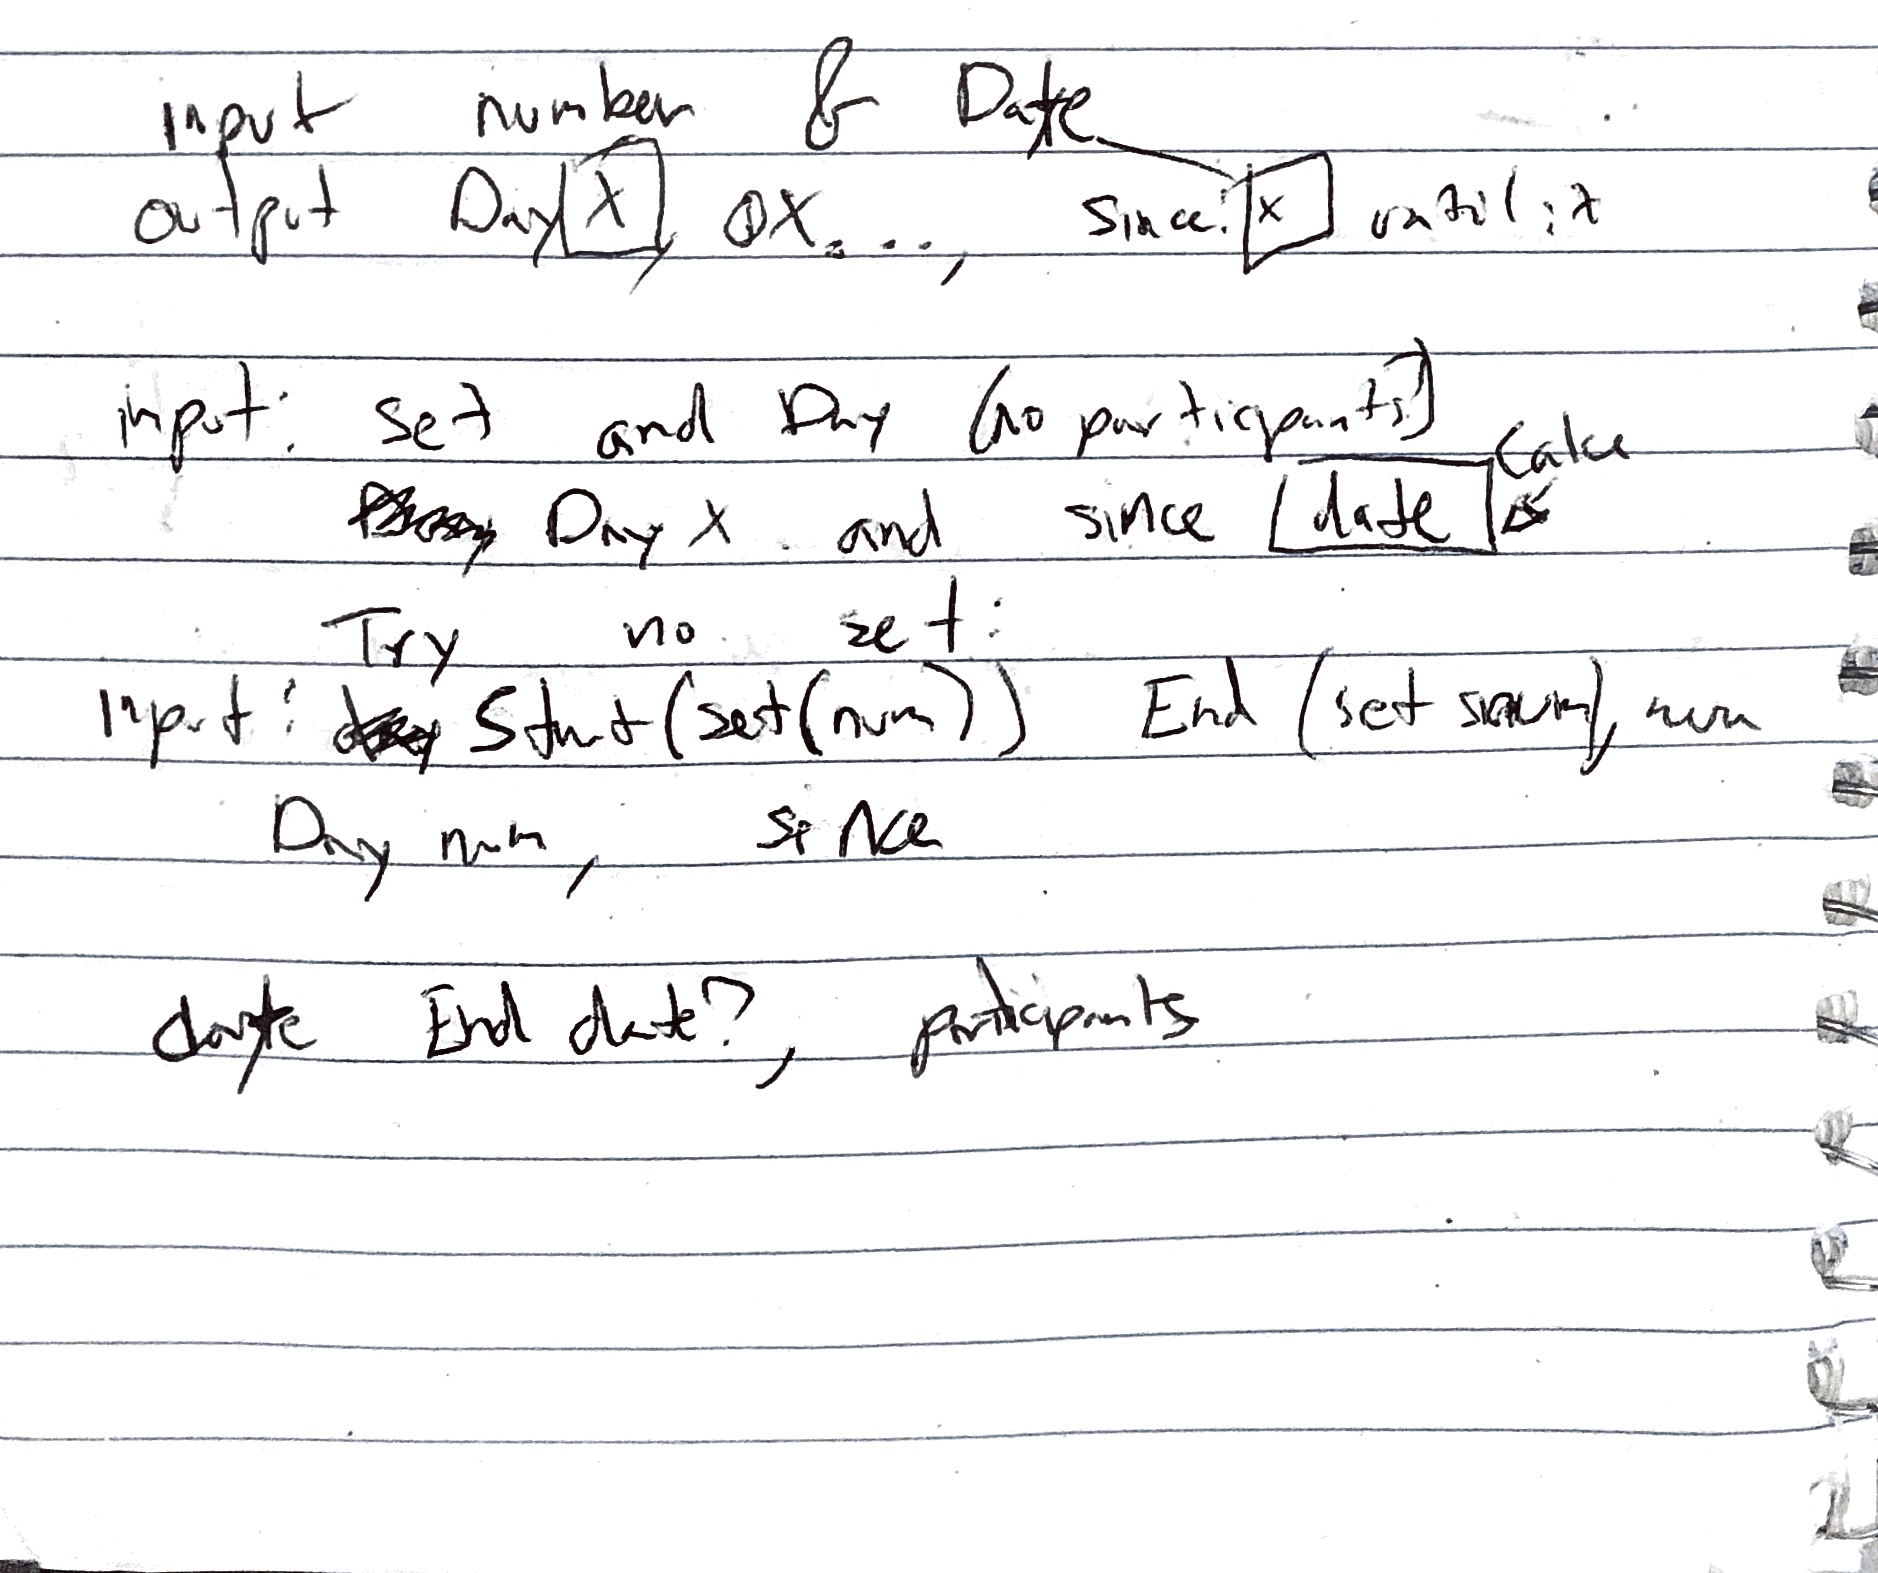 input number & Date
output Day X, @X...., since: x until:
input: set and Day (no participants)
Calcs
Day X and since date
Try no set:
Input: Start (set(num)) End (set num), num
Day num, since
date End date?, participants